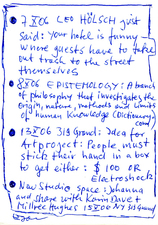 7 X 06 LEO HÖLSCH just
said: Your hotel is funny
where guests have to take
out trash to the street
themselves
8 X 06 EPISTEMOLOGY: A branch
of philosophy that investigates the
origin, nature, methods and limits
of human knowledge (Dictionary)
13 X 06 319 Grand: Idea for
Art project: People must
stick their hand in a box
to get either: $ 100 OR
Electroshock
New Studio space: Johanna
and share with Karin Dave +
Millree Hughes 15 X 00 NY 319 Grand